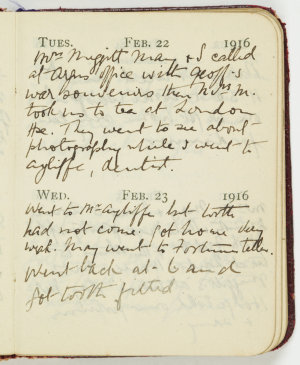 TUES. FEB. 22 1916
Mrs Meggitt May & I called
at Argus office with Geoff's
war souvenirs then Mrs M.
took us to tea at London
Hse. They went to see about
photography while I went to
Ayliffe, dentist.
WED. FEB. 23 1916
Went to Mr Ayliffe but tooth
had not come. Got home very
wet. May went to Fortune teller.
Went back at 6 and
got tooth fitted